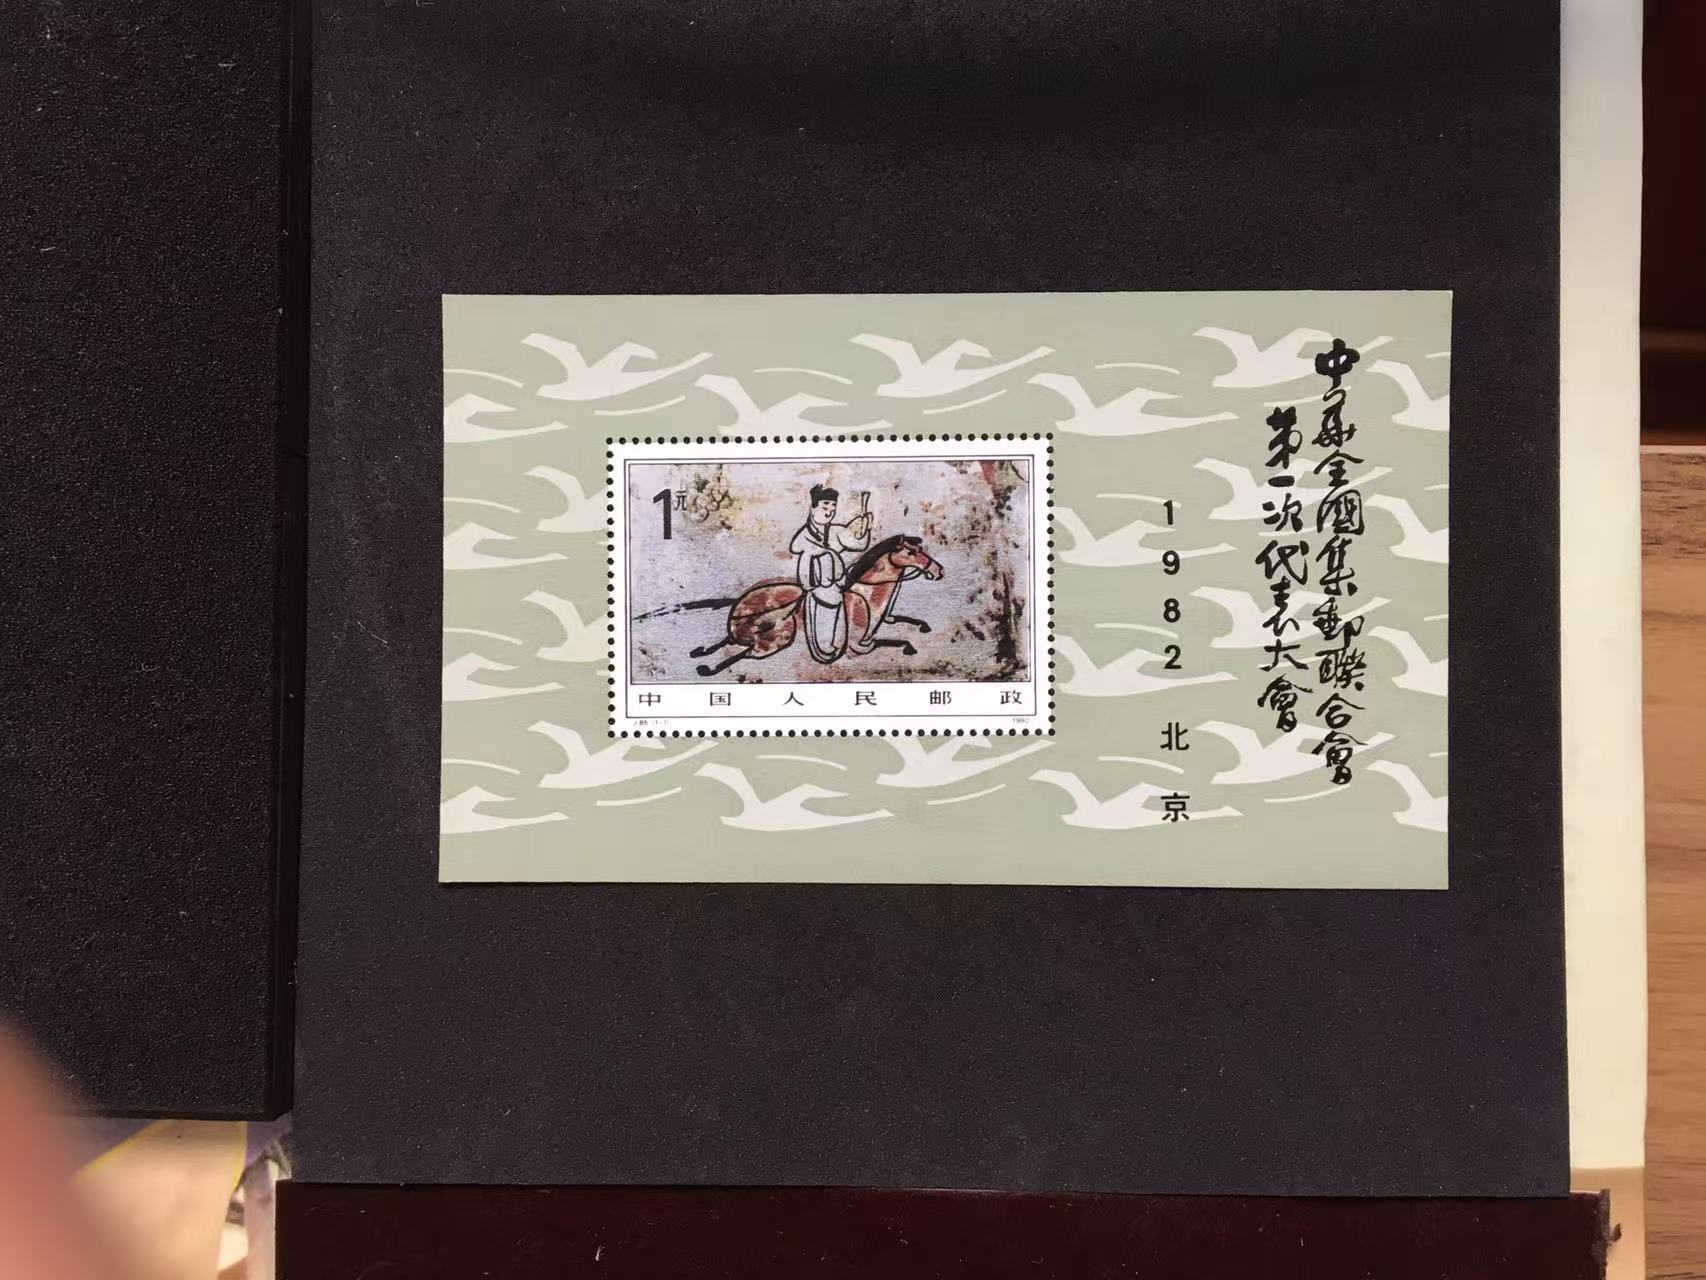 中华全國集郵聯合會
第一次代表大會
1982 北京
1元
中国人民邮政
J.85 (1-1)
1982